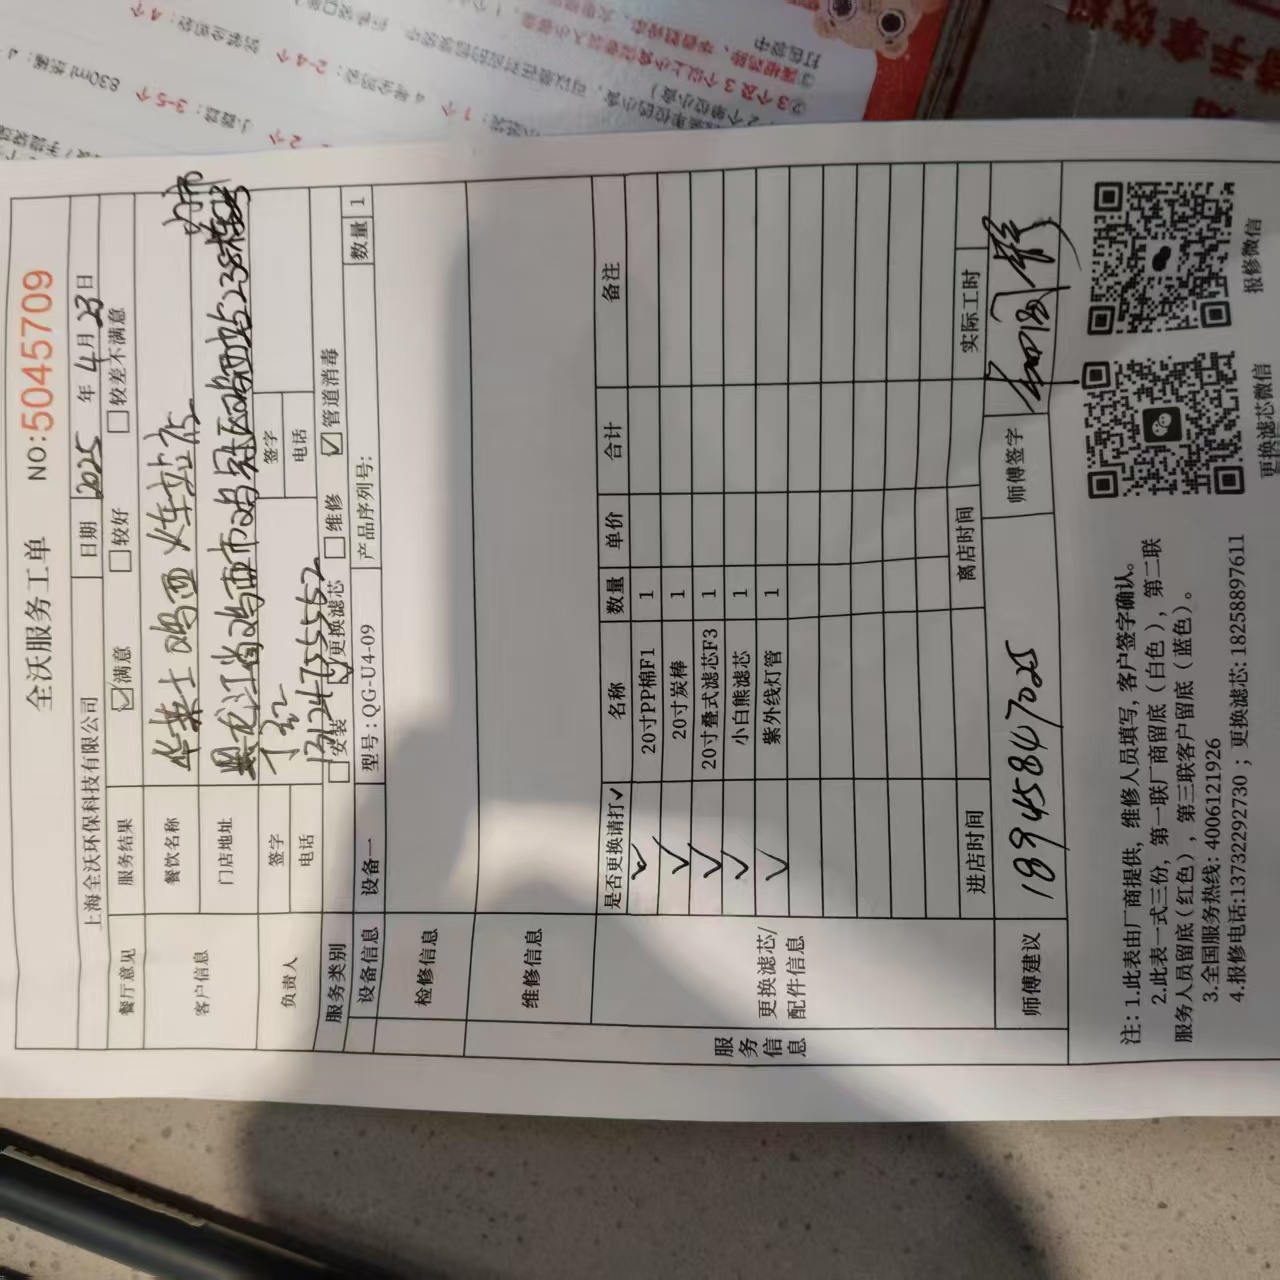 全沃服务工单 NO:5045709
上海全沃环保科技有限公司 日期 2025 年 4 月 23 日
餐厅意见 服务结果 ☑满意 □较好 □较差不满意
客户信息 餐饮名称 华莱士鸡西火车站店
门店地址 黑龙江省鸡西市鸡冠区鸡西站238栋
负责人 签字 签字
电话 13124755552 电话
服务类别 □安装 ☑更换滤芯 □维修 ☑管道消毒
设备信息 设备一 型号: QG-U4-09 产品序列号: 数量 1
服务信息
检修信息
维修信息
更换滤芯/配件信息
是否更换请打✓ 名称 数量 单价 合计 备注
✓ 20寸PP棉F1 1
✓ 20寸炭棒 1
✓ 20寸叠式滤芯F3 1
✓ 小白熊滤芯 1
✓ 紫外线灯管 1
进店时间 离店时间 实际工时
师傅建议 18945847025 师傅签字
注: 1.此表由厂商提供, 维修人员填写, 客户签字确认。
2.此表一式三份, 第一联厂商留底（白色）, 第二联
服务人员留底(红色）, 第三联客户留底（蓝色）。
3.全国服务热线: 4006121926
4.报修电话:13732292730 ; 更换滤芯: 18258897611
更换滤芯微信
报修微信
830ml
3-5个
2-4个
4个
1个
2个